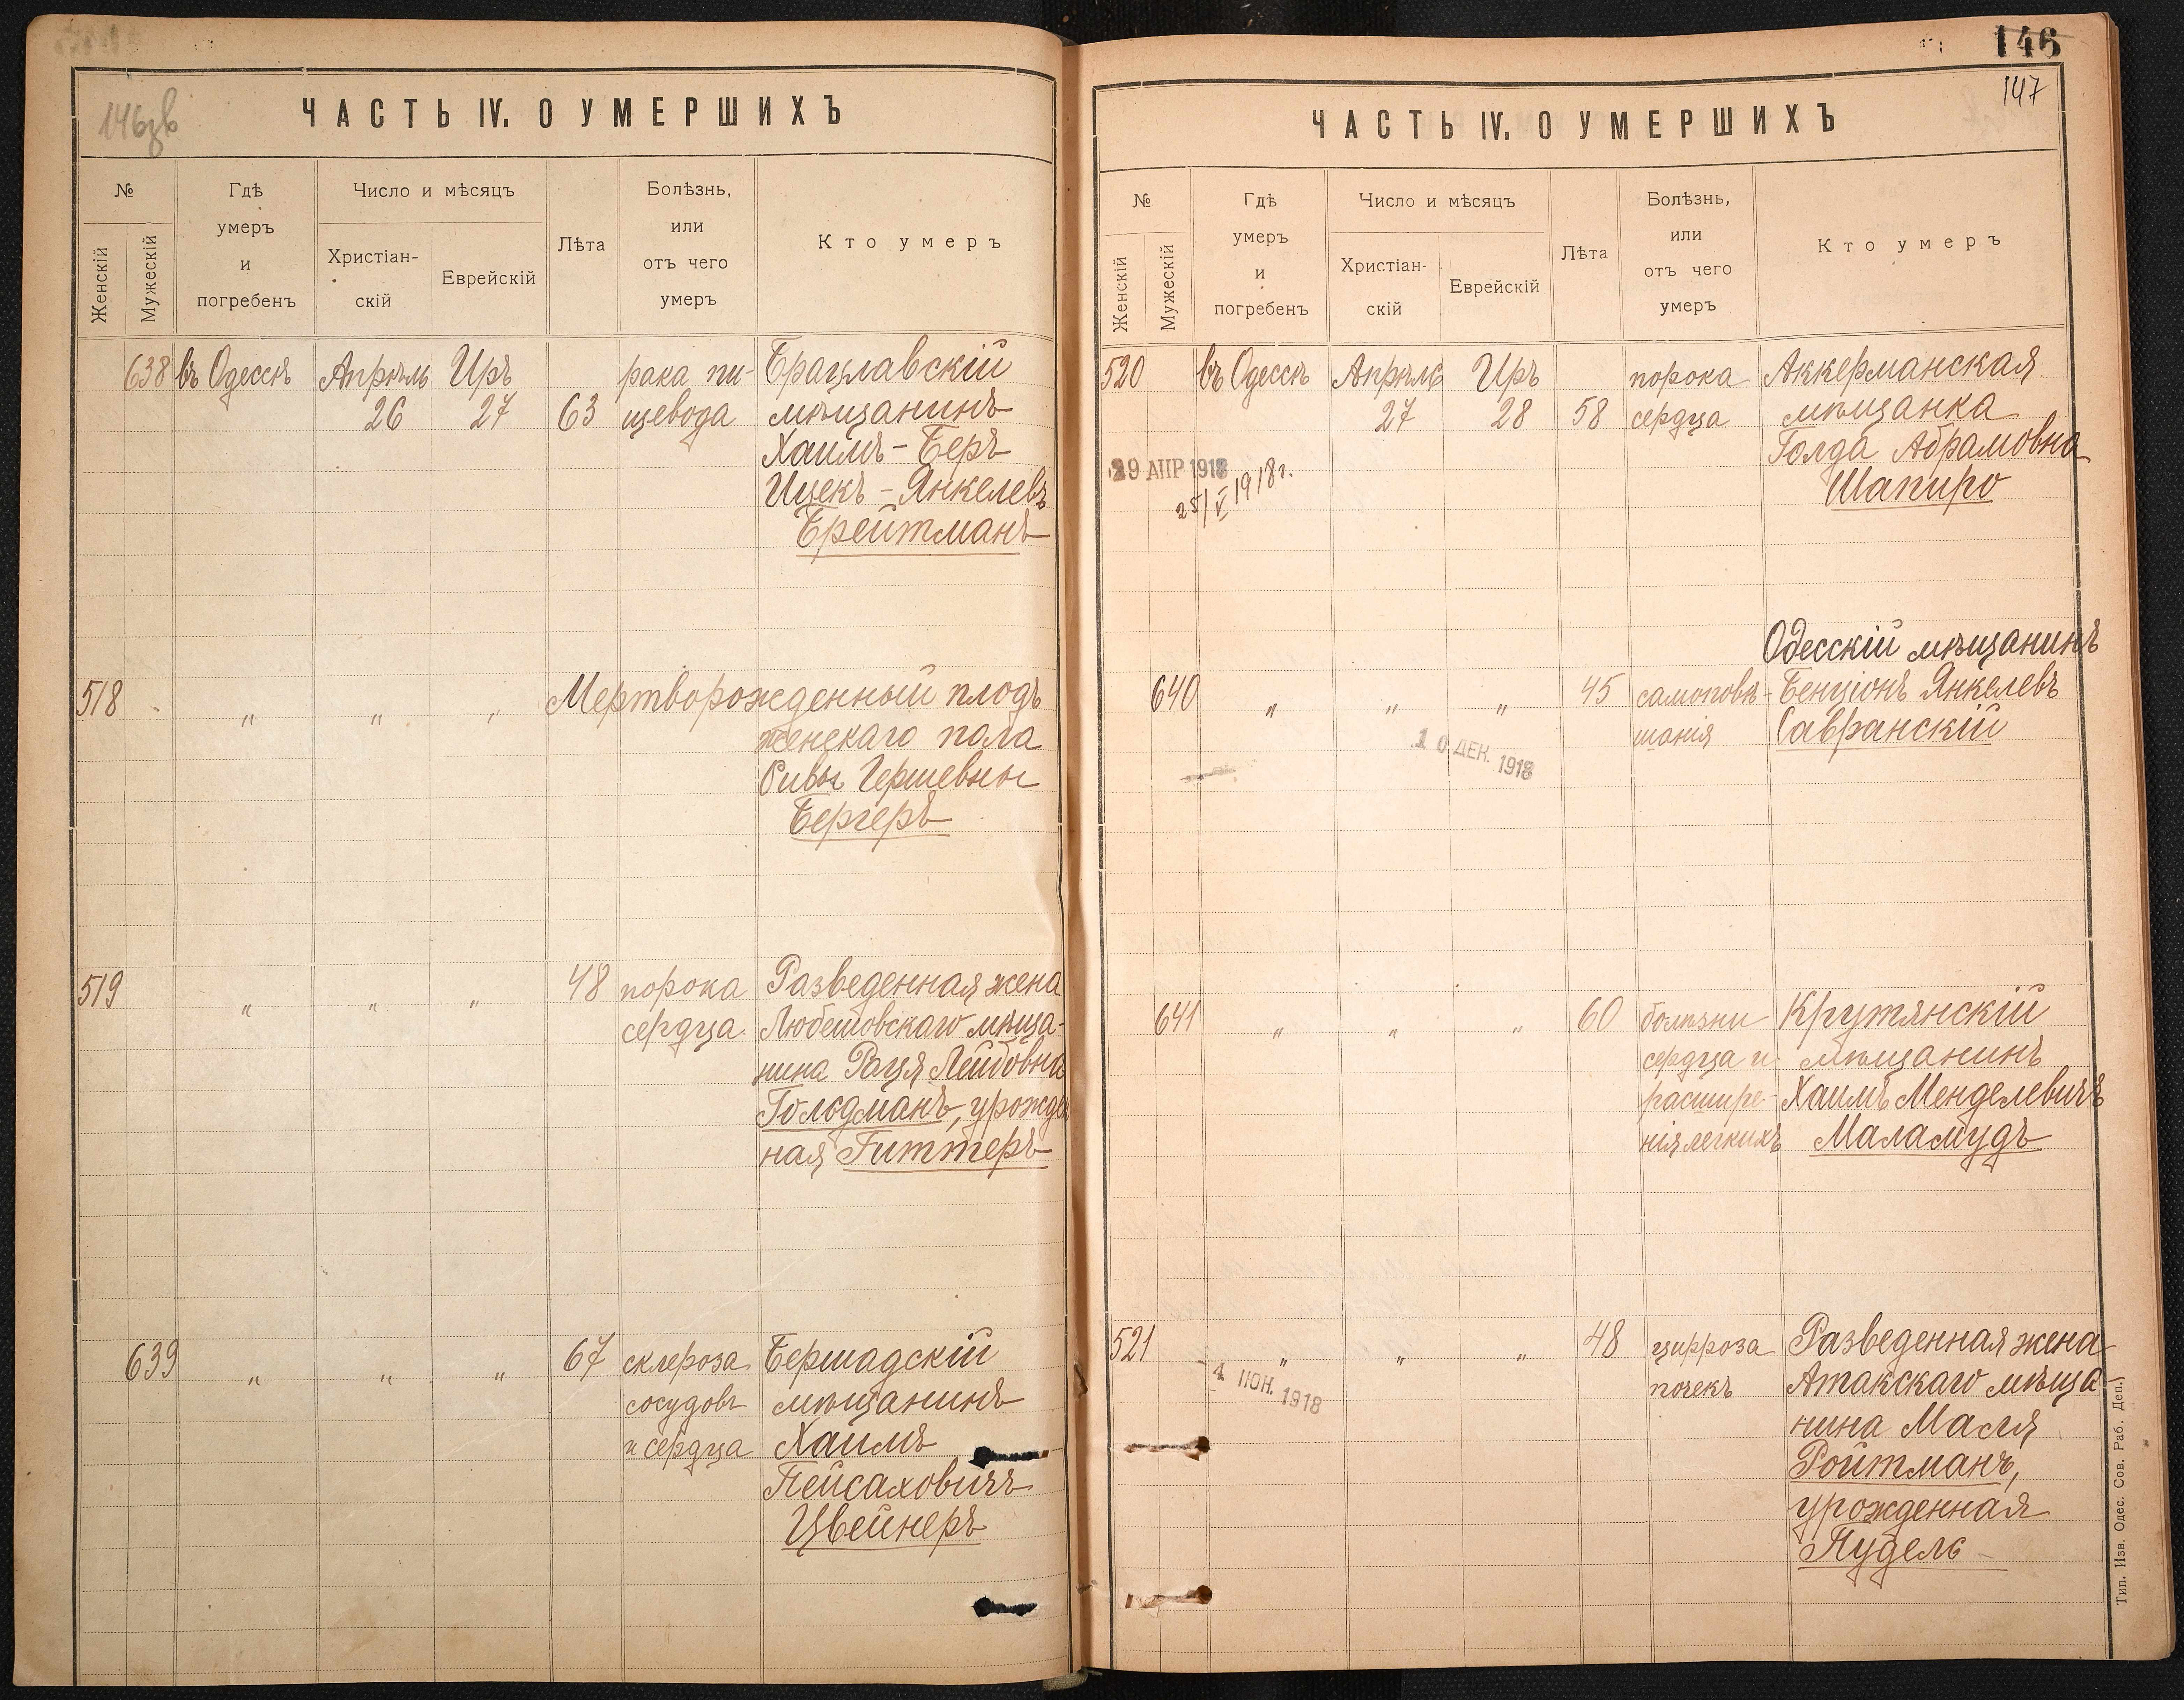 146зв
ЧАСТЬ IV. О УМЕРШИХЪ
№
Женскій
Мужескій
Гдѣ
умеръ
и
погребенъ
Число и мѣсяцъ
Христіан-
скій
Еврейскій
Лѣта
Болѣзнь,
или
отъ чего
умеръ
Кто умеръ
638 въ Одессѣ Апрѣль Иръ рака пи- Брацлавскій
26 27 63 щевода мѣщанинъ
Хаимъ-Беръ
Ицекъ-Янкелевъ
Брейтманъ
518 " " " Мертворожденный плодъ
женскаго пола
Ривы Гершевны
Бергеръ
519 " " " 48 порока Разведенная жена
сердца Любешовскаго мѣща-
нина Рация Лейбовна
Гольдманъ, урожден
ная Гиттеръ
639 " " " 67 склероза Бершадскій
сосудовъ мѣщанинъ
и сердца Хаимъ
Пейсаховичъ
Цвейнеръ
146
147
ЧАСТЬ IV. О УМЕРШИХЪ
№
Женскій
Мужескій
Гдѣ
умеръ
и
погребенъ
Число и мѣсяцъ
Христіан-
скій
Еврейскій
Лѣта
Болѣзнь,
или
отъ чего
умеръ
Кто умеръ
520 въ Одессѣ Апрѣль Иръ порока Аккерманская
27 28 58 сердца мѣщанка
Голда Абрамовна
29 АПР 1918
25/V 1918 г. Шапиро
Одесскій мѣщанинъ
640 " " " 45 самоповѣ- Бенціонъ Янкелевъ
шанія Савранскій
10 ДЕК. 1918
641 " " " 60 болѣзни Крутянскій
сердца и мѣщанинъ
расшире- Хаимъ Менделевичъ
нія легкихъ Маламудъ
521 " " " 48 цирроза Разведенная жена
4 ІЮН. 1918
почекъ Атакскаго мѣща-
нина Мася
Ройтманъ,
урожденная
Нудель
Тип. Изв. Одес. Сов. Раб. Деп.)